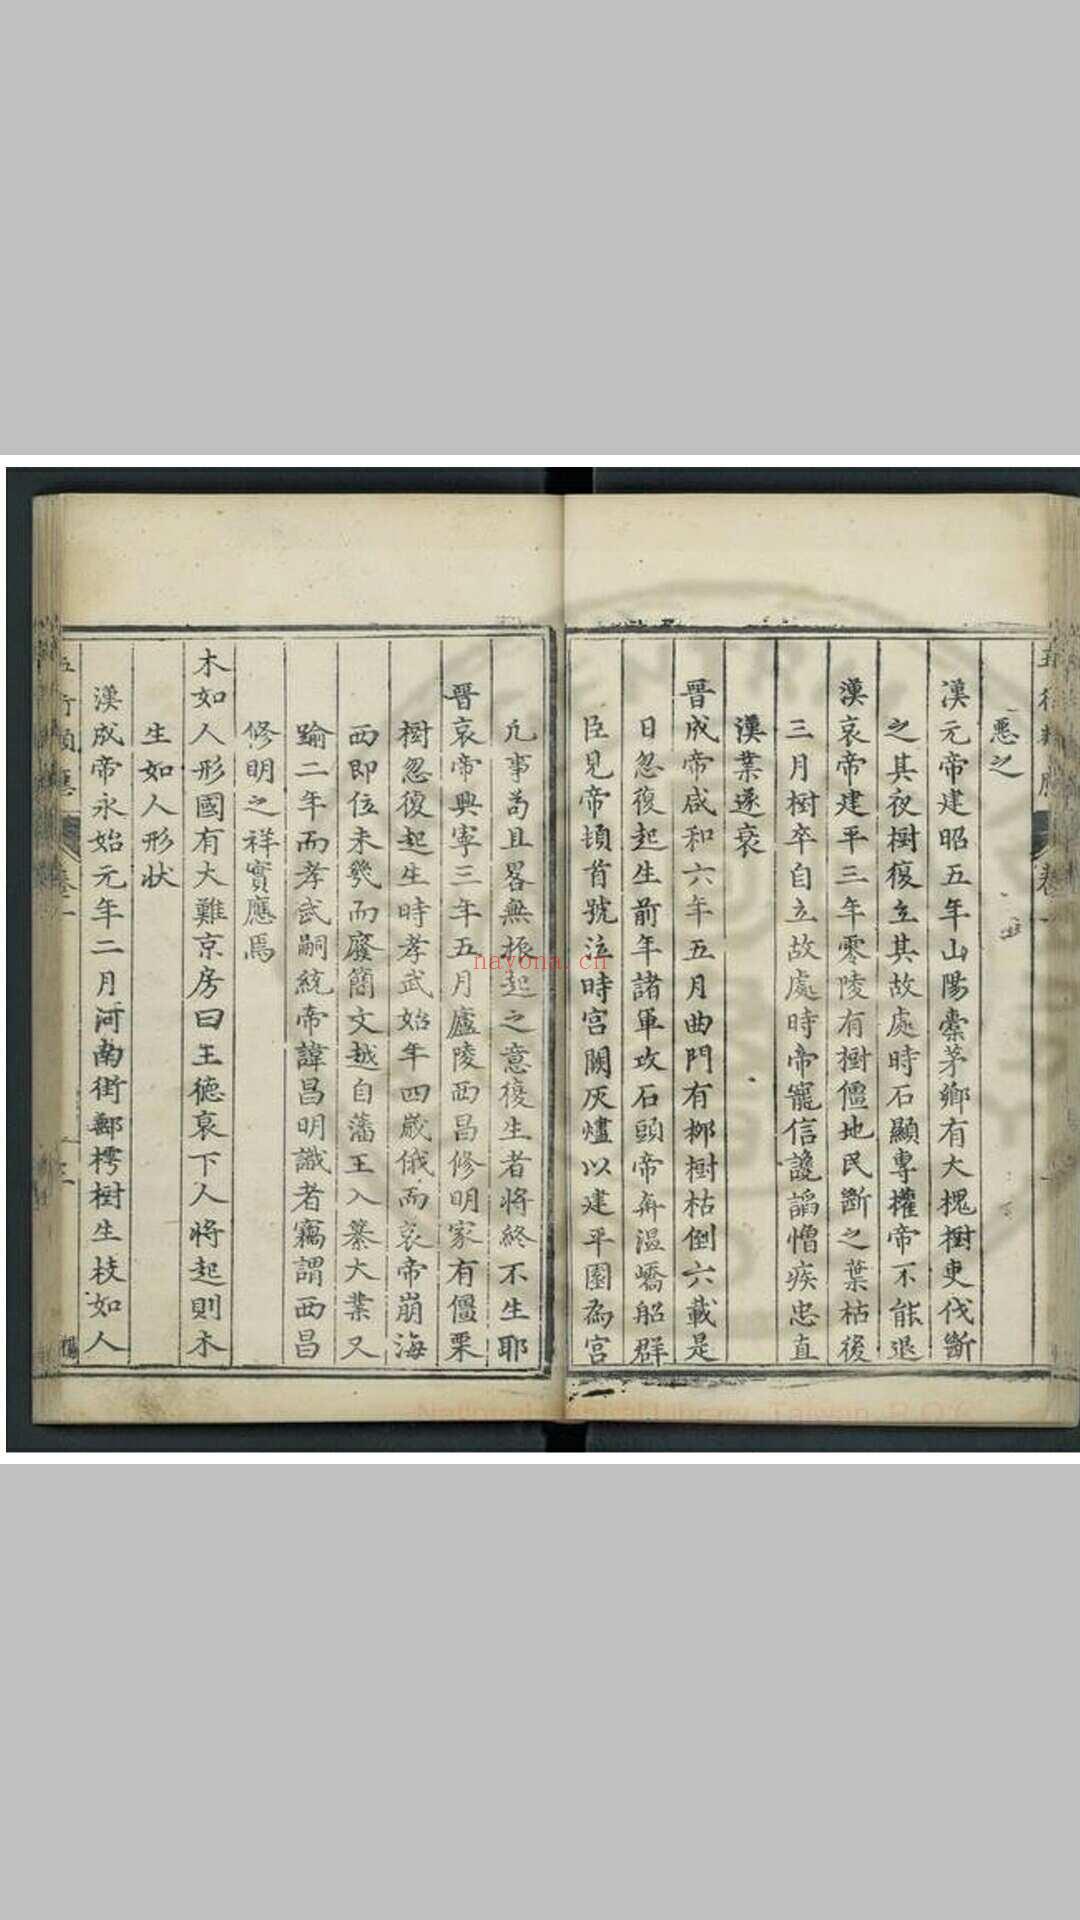 惡之
漢元帝建昭五年山陽橐茅鄉有大槐樹吏伐斷
之其夜樹復立其故處時石顯專權帝不能退
漢哀帝建平三年零陵有樹僵地民斷之葉枯後
三月樹卒自立故處時帝寵信讒謟憎疾忠直
漢業遂衰
晉成帝咸和六年五月曲門有柳樹枯倒六載是
日忽復起生前年諸軍攻石頭帝奔溫嶠船群
臣見帝頓首號泣時宮闕灰燼以建平園為宮
凡事苟且畧無振起之意復生者將終不生耶
晉哀帝興寧三年五月廬陵西昌修明家有僵栗
樹忽復起生時孝武始年四歲俄而哀帝崩海
西即位未幾而廢簡文越自藩王入纂大業又
踰二年而孝武嗣統帝諱昌明識者竊謂西昌
修明之祥實應焉
木如人形國有大難京房曰王德衰下人將起則木
生如人形狀
漢成帝永始元年二月河南街郵樗樹生枝如人
nayona.cn